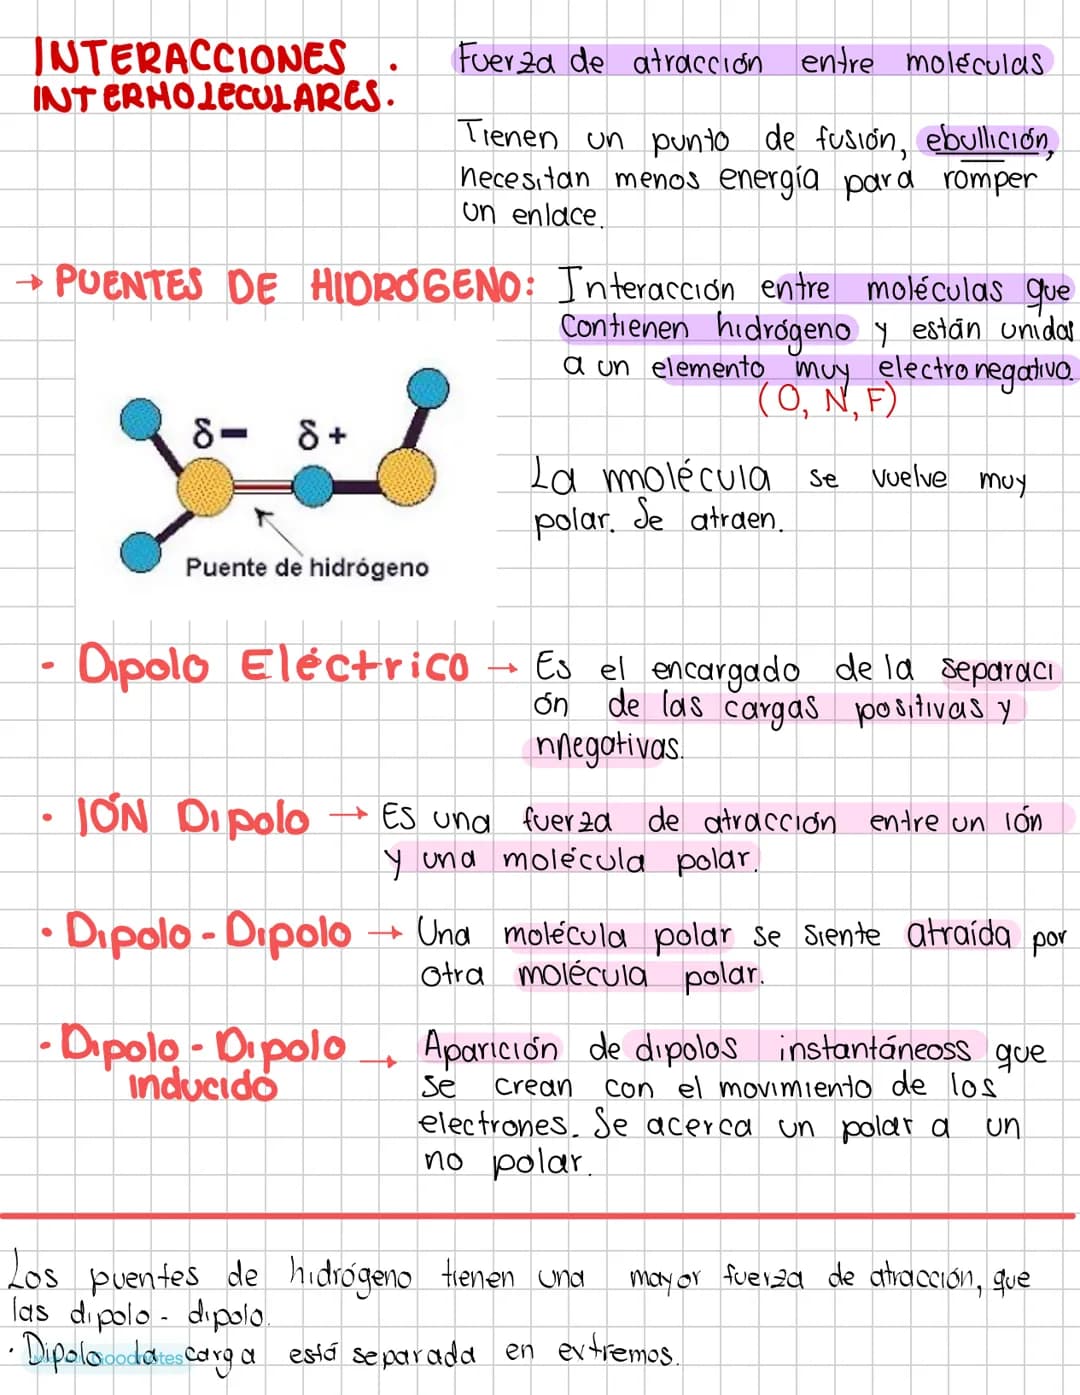 INTERACCIONES .
INTERMOLECULARES.
Fuerza de atracción entre moléculas
Tienen un punto de fusión, ebullición,
necesitan menos energía para romper
un enlace.
→ PUENTES DE HIDRÓGENO: Interacción entre moléculas que
Contienen hidrógeno y están unidas
a un elemento muy electronegativo.
(O, N, F)
δ- δ+
Puente de hidrógeno
La molécula se vuelve muy
polar. Se atraen.
· Dipolo Eléctrico → Es el encargado de la separaci
ón de las cargas positivas y
nnegativas.
· IÓN Dipolo → ES una fuerza de atracción entre un ión
y una molécula polar.
· Dipolo - Dipolo → Una molécula polar se siente atraída por
otra molécula polar.
· Dipolo - Dipolo → Aparición de dipolos instantáneoss que
inducido se crean con el movimiento de los
electrones. Se acerca un polar a un
no polar.
Los puentes de hidrógeno tienen una mayor fuerza de atracción, que
las dipolo - dipolo.
· Dipolo la carga está separada en extremos.
Goodnotes